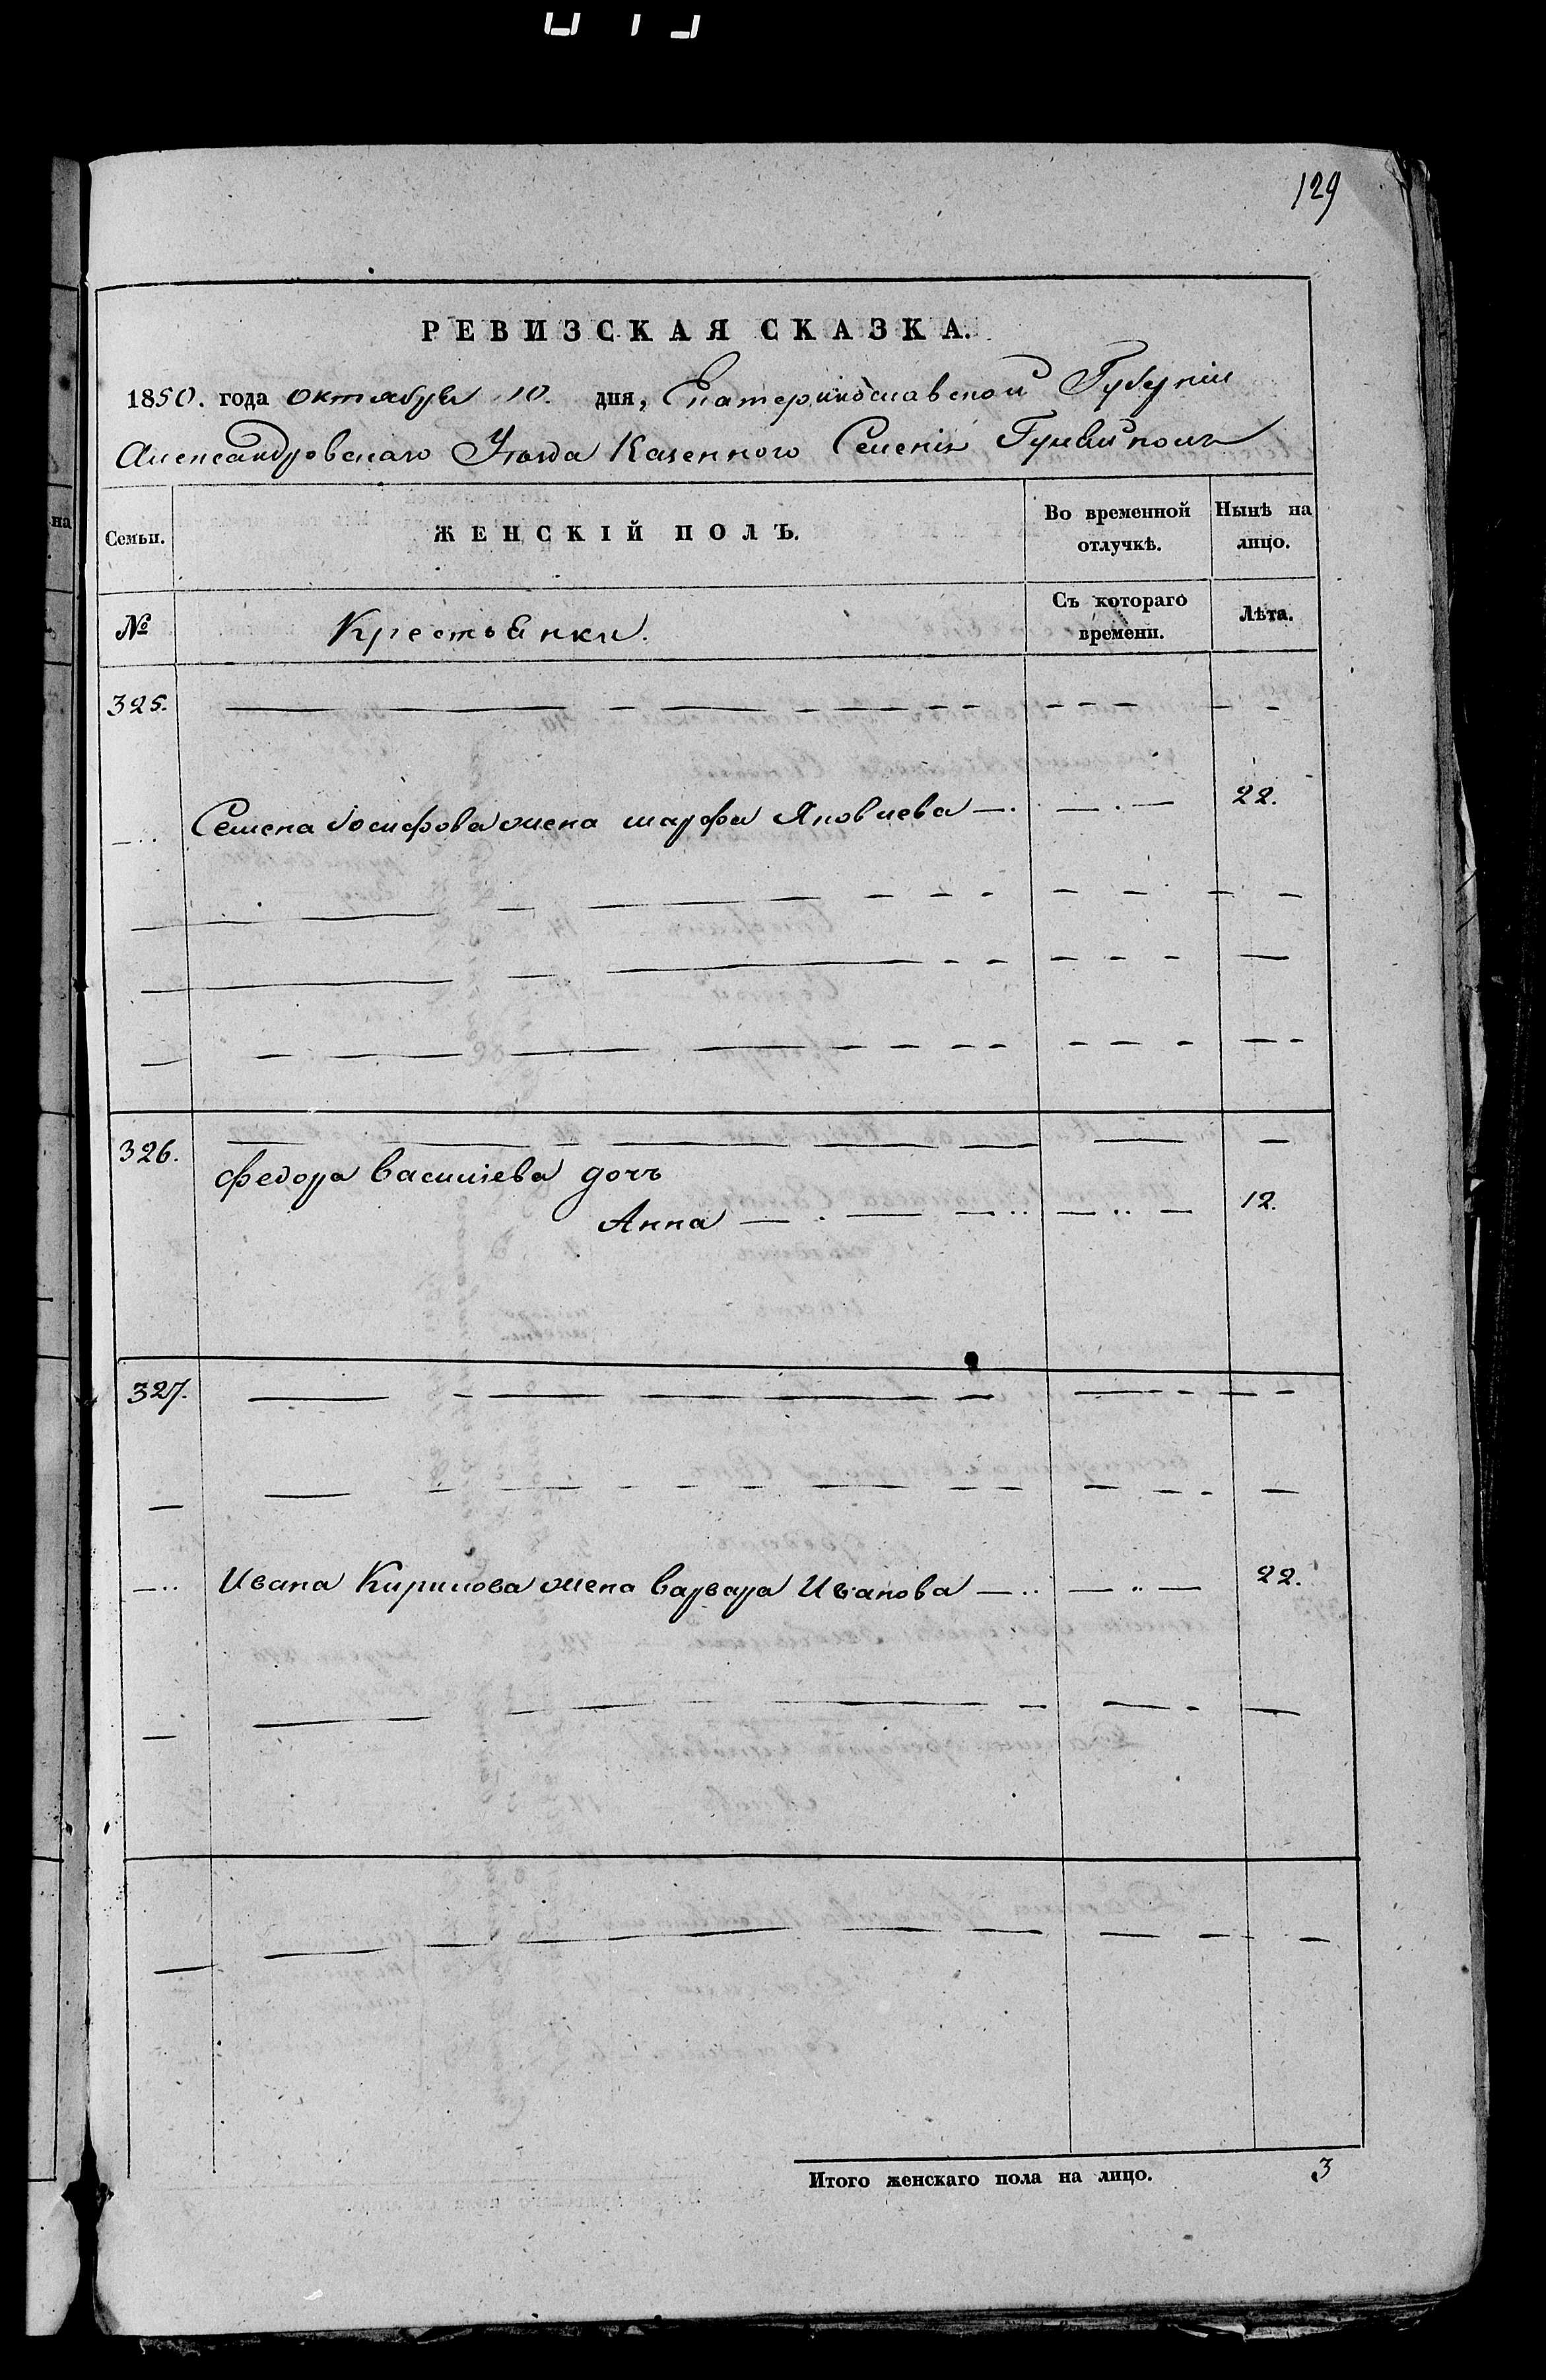 129
РЕВИЗСКАЯ СКАЗКА.
1850. года октября 10. дня, Екатеринославской Губерніи
Александровскаго Уезда Казеннаго Селенія Гуляйполя
Семьи. ЖЕНСКІЙ ПОЛЪ. Во временной отлучкѣ. Нынѣ на лицо.
№ Крестьянки. Съ котораго времени. Лѣта.
325.
Семена Іосифова жена марфа Яковлева 22.
326.
федора васильева дочь
Анна 12.
327.
Ивана Кирилова жена варвара Иванова 22.
Итого женскаго пола на лицо. 3
на